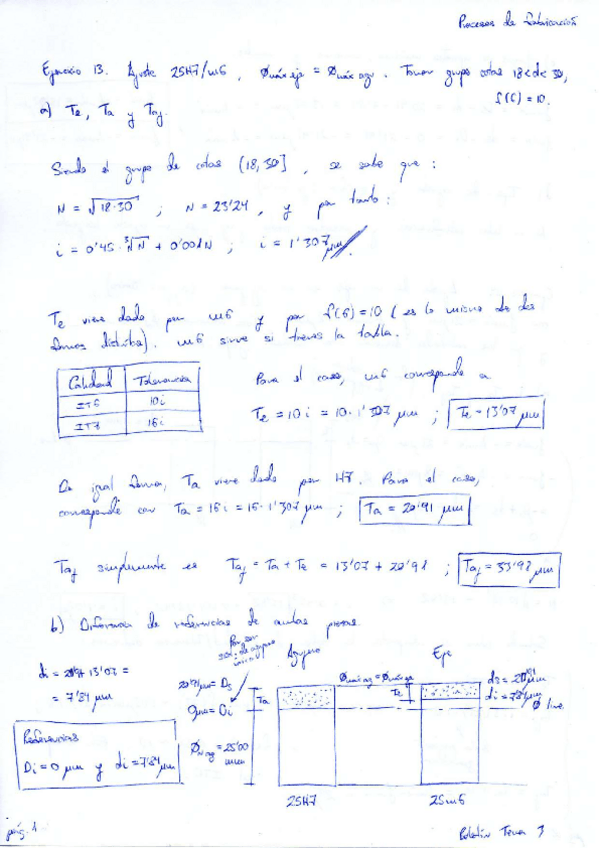 Procesos de fabricación
Ejercicio 13. Ajuste 25H7/m6, Ømáx eje = Ømáx agu. Tomar grupo cotas 18<d<30,
f(6) = 10.
a) Te, Ta y Taj.
Siendo el grupo de cotas (18,30], se sabe que:
N = √18·30 ; N = 23'24, y por tanto:
i = 0'45·∛N + 0'001N ; i = 1'307 μm
Te viene dado por m6 y por f(6)=10 (es lo mismo de dos
formas distintas). m6 sirve si tienes la tabla.
Calidad Tolerancia
IT6 10i
IT7 16i
Para el caso, m6 corresponde a
Te = 10i = 10·1'307 μm ; Te = 13'07 μm
De igual forma, Ta viene dado por H7. Para el caso,
corresponde con Ta = 16i = 16·1'307 μm ; Ta = 20'91 μm
Taj simplemente es Taj = Ta + Te = 13'07 + 20'91 ; Taj = 33'98 μm
b) Diferencia de referencias de ambas piezas.
Por ser
Agujero Eje
di = 20'91-13'07 =
= 7'84 μm
20'91 μm = Ds
0 μm = Di
Ta
Ømáx ag = Ømáx eje
Te
ds = 20'91 μm
di = 7'84 μm
Ø línea
ØN ag = 25'00
mm
Referencias
Di = 0 μm y di = 7'84 μm
25H7 25m6
pág. 1
Boletín Tema 3